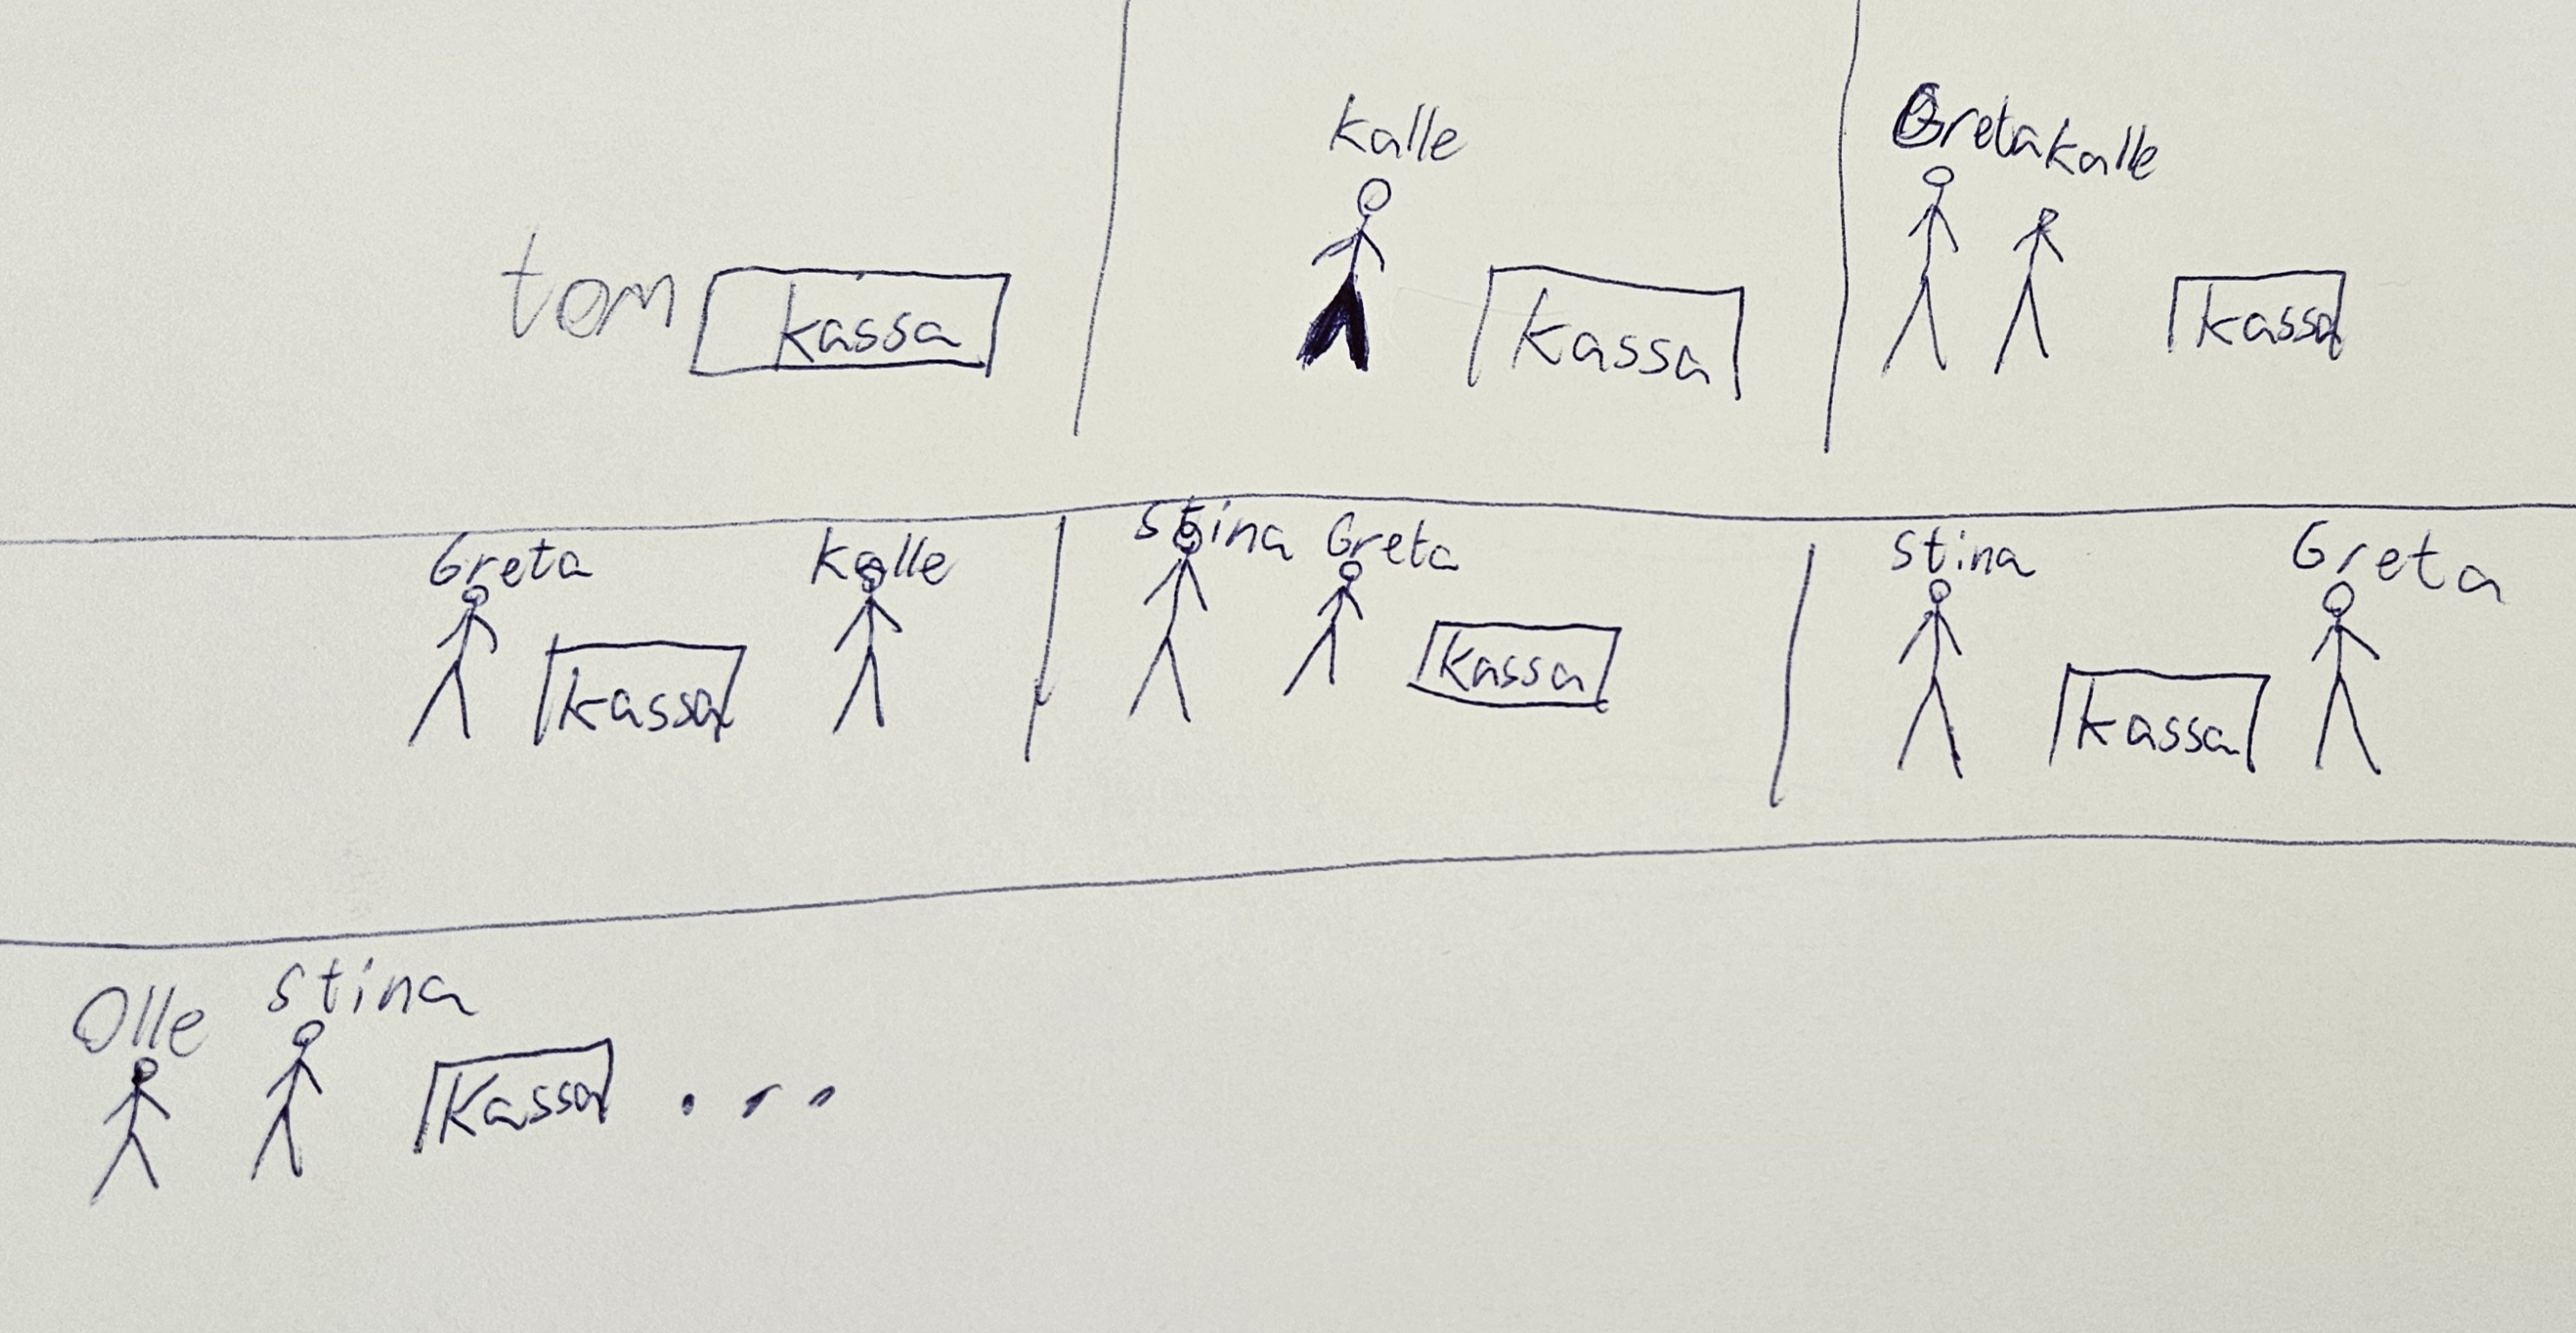 tom kassa
Kalle
kassa
Greta Kalle
kassa
Greta Kalle
kassa
Stina Greta
kassa
Stina Greta
kassa
Olle Stina
Kassa ...